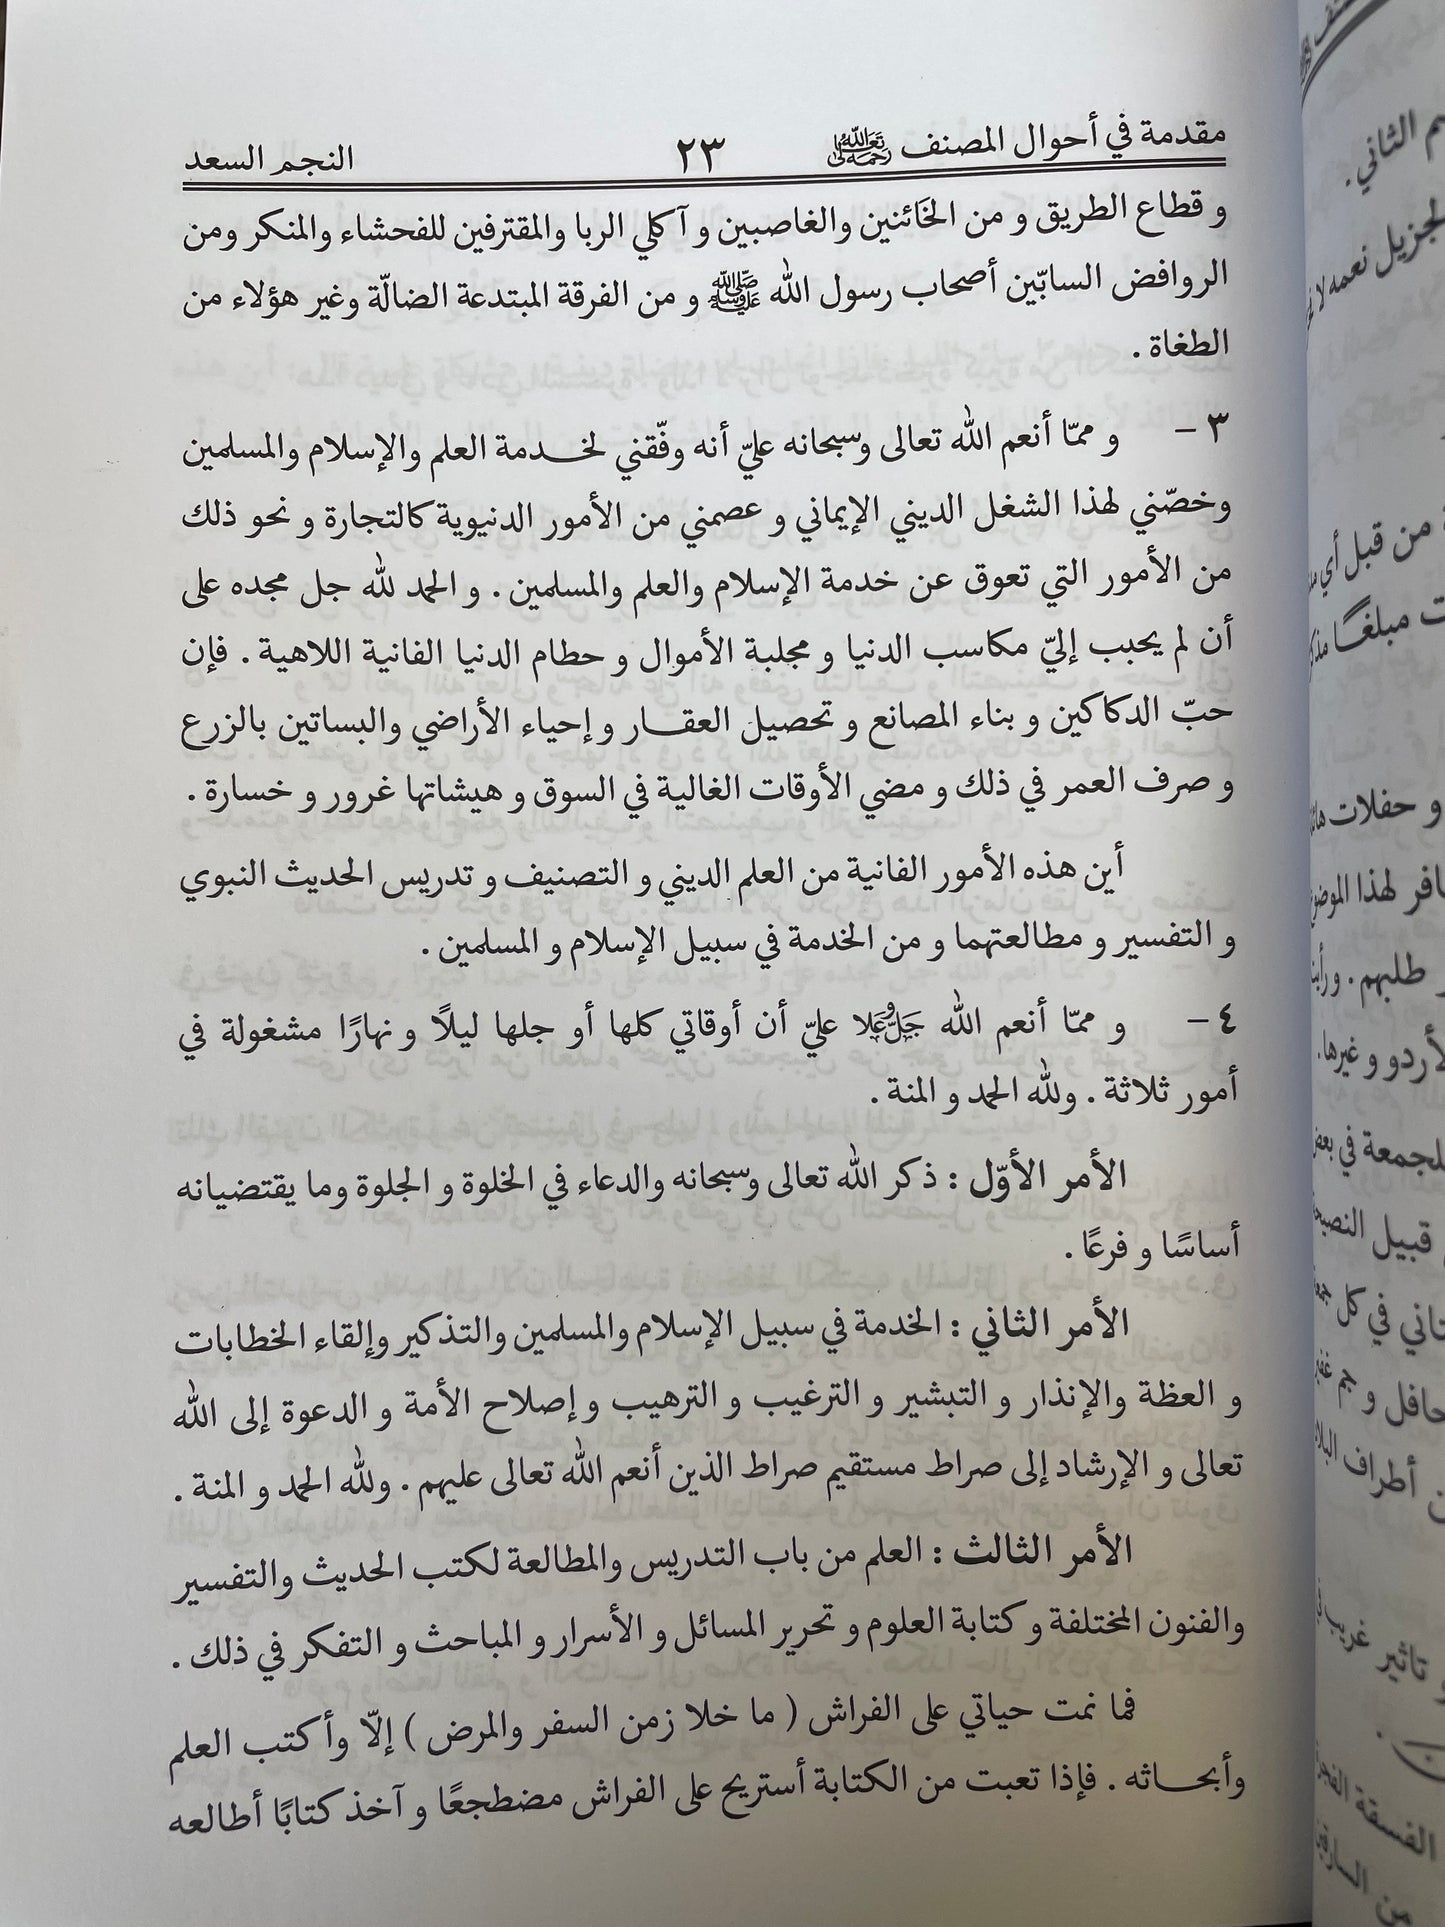 مقدمة في أحوال المصنف رحمه الله تعالى ٢٣ النجم السعد
و قطاع الطريق و من الخائنين والغاصبين و آكلي الربا والمقترفين للفحشاء والمنكر ومن
الروافض السابّين أصحاب رسول الله ﷺ و من الفرقة المبتدعة الضالّة وغير هؤلاء من
الطغاة .
٣ - و ممّا أنعم الله تعالى وسبحانه عليّ أنه وفّقني لخدمة العلم والإسلام والمسلمين
وخصّني لهذا الشغل الديني الإيماني و عصمني من الأمور الدنيوية كالتجارة و نحو ذلك
من الأمور التي تعوق عن خدمة الإسلام والعلم والمسلمين . و الحمد لله جل مجده على
أن لم يحبب إليّ مكاسب الدنيا و مجلبة الأموال و حطام الدنيا الفانية اللاهية . فإن
حبّ الدكاكين و بناء المصانع و تحصيل العقار و إحياء الأراضي والبساتين بالزرع
و صرف العمر في ذلك و مضي الأوقات الغالية في السوق و هيشاتها غرور و خسارة .
أين هذه الأمور الفانية من العلم الديني و التصنيف و تدريس الحديث النبوي
و التفسير و مطالعتهما و من الخدمة في سبيل الإسلام و المسلمين .
٤ - و ممّا أنعم الله جَلَّ وعَلا عليّ أن أوقاتي كلها أو جلها ليلًا و نهارًا مشغولة في
أمور ثلاثة . ولله الحمد و المنة .
الأمر الأوّل : ذكر الله تعالى وسبحانه والدعاء في الخلوة و الجلوة وما يقتضيانه
أساسًا و فرعًا .
الأمر الثاني : الخدمة في سبيل الإسلام والمسلمين والتذكير وإلقاء الخطابات
و العظة والإنذار و التبشير و الترغيب و الترهيب و إصلاح الأمة و الدعوة إلى الله
تعالى و الإرشاد إلى صراط مستقيم صراط الذين أنعم الله تعالى عليهم . ولله الحمد و المنة .
الأمر الثالث : العلم من باب التدريس والمطالعة لكتب الحديث والتفسير
والفنون المختلفة و كتابة العلوم و تحرير المسائل و الأسرار و المباحث و التفكر في ذلك .
فما نمت حياتي على الفراش ( ما خلا زمن السفر والمرض ) إلّا وأكتب العلم
وأبحاثه . فإذا تعبت من الكتابة أستريح على الفراش مضطجعًا و آخذ كتابًا أطالعه
الثاني .
لجزيل نعمه لا
من قبل أي
مبلغًا
و حفلات
لهذا
طلبهم . و
و غيرها .
للجمعة في
قبيل
في كل
و جم
أطراف
و تاثير
الفسقة